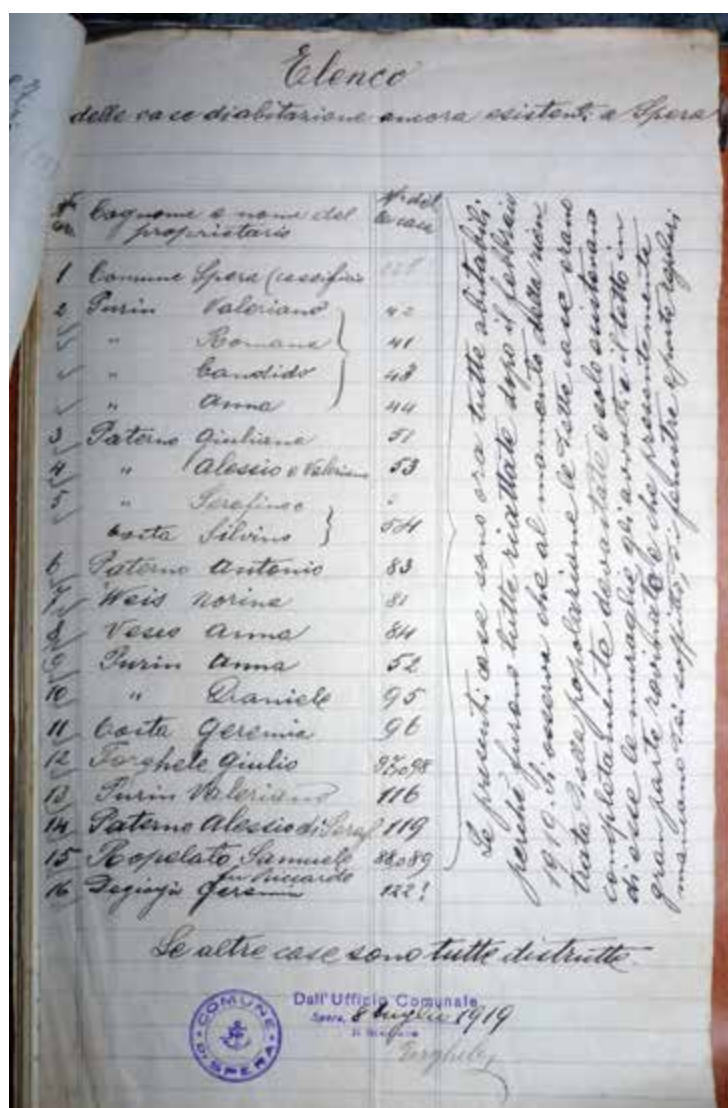 Elenco
delle case di abitazione ancora esistenti a Spera
Cognome e nome del proprietario
No del
le case
1 Comune Spera (caseificio 128
2 Purin Valeriano 42
" Romano 41
" Candido 43
" Anna 44
3 Paterno Giuliano 51
4 " Alessio e Valeriano 53
5 " Serafino e "
Costa Silvino 54
6 Paterno Antonio 83
7 Weis Norina 81
8 Vesco Anna 84
9 Purin Anna 52
10 " Daniele 95
11 Costa Geremia 96
12 Torghele Giulio 97e98
13 Purin Valeriano 116
14 Paterno Alessio di Seraf 119
15 Ropelato Samuele 88e89
fu Riccardo
16 Degiorgio Geremia 122
Le presenti case sono ora tutte abitabili
perchè furono tutte riattate dopo il febbraio
1919. Si osserva che al momento della rien
trata della popolazione le dette case erano
completamente devastate e solo esistevano
di esse le muraglie gli avvolti e il tetto in
gran parte rovinato e che presentemente
mancano dei soffitti, di finestre e porte regolari
Le altre case sono tutte distrutte.
COMUNE DI SPERA
Dall'Ufficio Comunale
Spera, 8 luglio 1919
Torghele